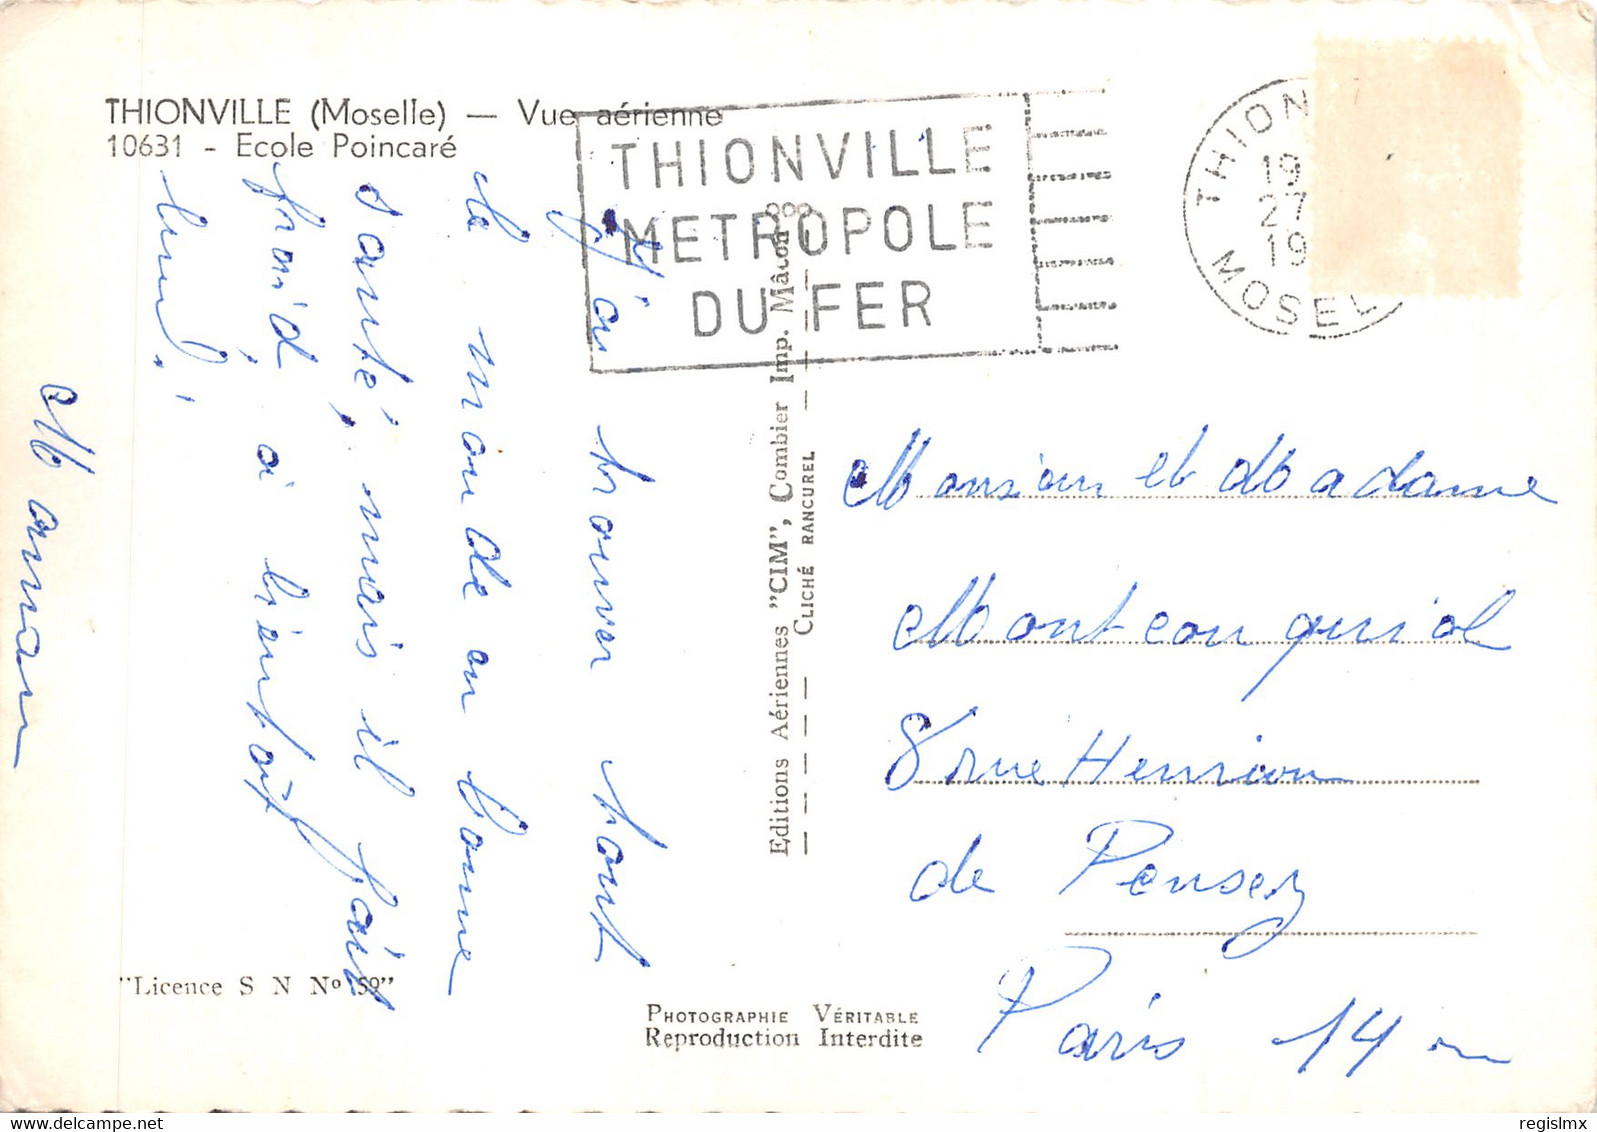 THIONVILLE (Moselle) — Vue aérienne
10631 - Ecole Poincaré
THIONVILLE
METROPOLE
DU FER
THION
19
27
19
MOSEL
J'ai trouver tout
le monde en bonne
santé, mais il fait
froid, à bientôt
Maman
Editions Aériennes "CIM", Combier Imp. Mâcon
CLICHÉ RANCUREL
Monsieur et Madame
Montcouquiol
8 rue Henrion
de Pensey
Paris 14
"Licence S N No 59"
PHOTOGRAPHIE VÉRITABLE
Reproduction Interdite
delcampe.net
regislmx